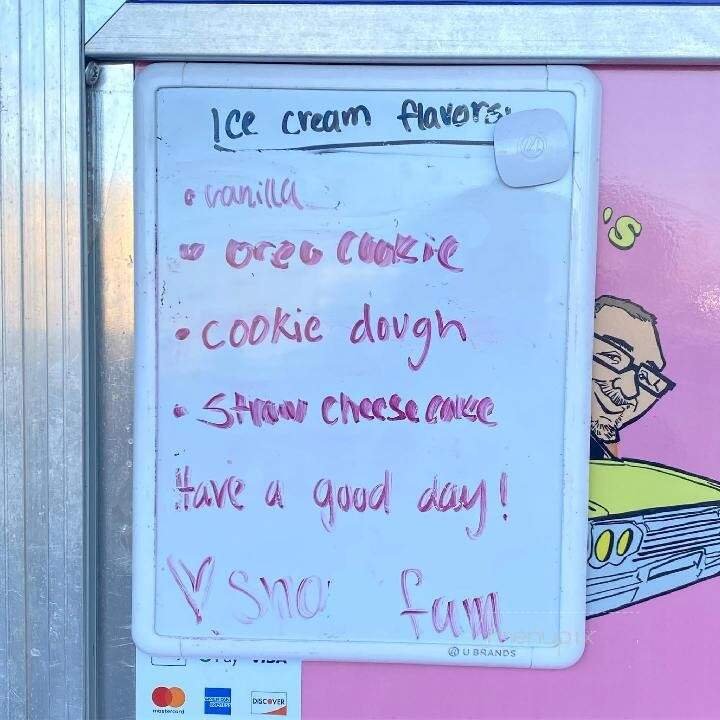 Ice cream flavors:
• vanilla
• oreo cookie
• cookie dough
• Straw cheesecake
Have a good day!
♡ Sno fam
U BRANDS
's
Pay VISA
mastercard
AMERICAN EXPRESS
DISCOVER